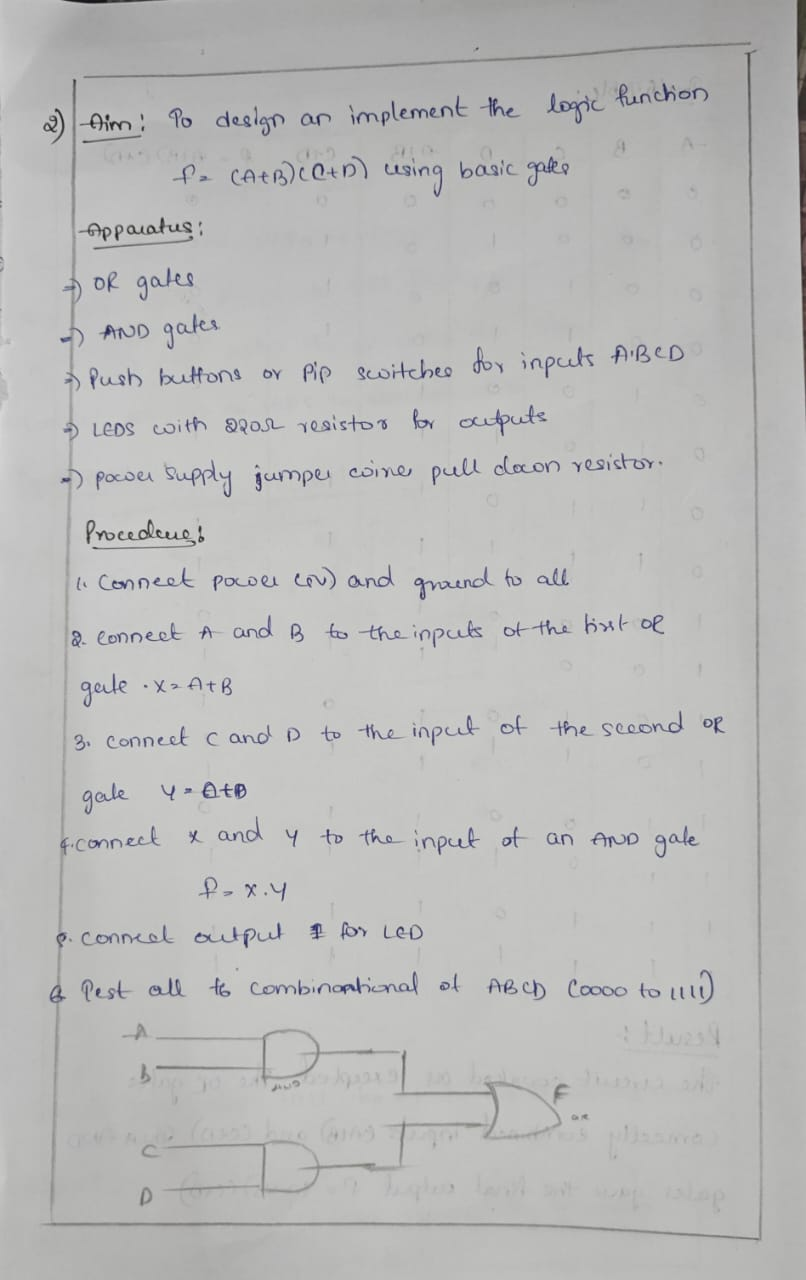 2) Aim: To design an implement the logic function
f = (A+B)(C+D) using basic gates
Apparatus:
⇒ OR gates
⇒ AND gates
⇒ Push buttons or Dip switches for inputs A·BCD
⇒ LEDS with 220Ω resistor for outputs
⇒ power supply jumper wires pull down resistor.
Procedure:
1. Connect power (5V) and ground to all
2. connect A and B to the inputs of the first OR
gate . X = A+B
3. connect C and D to the input of the second OR
gate Y =
4. connect x and y to the input of an AND gate
f = x.y
5. connect output f for LED
6 Test all 16 combinational of ABCD (0000 to 1111)
A
B
AND
F
OR
C
D